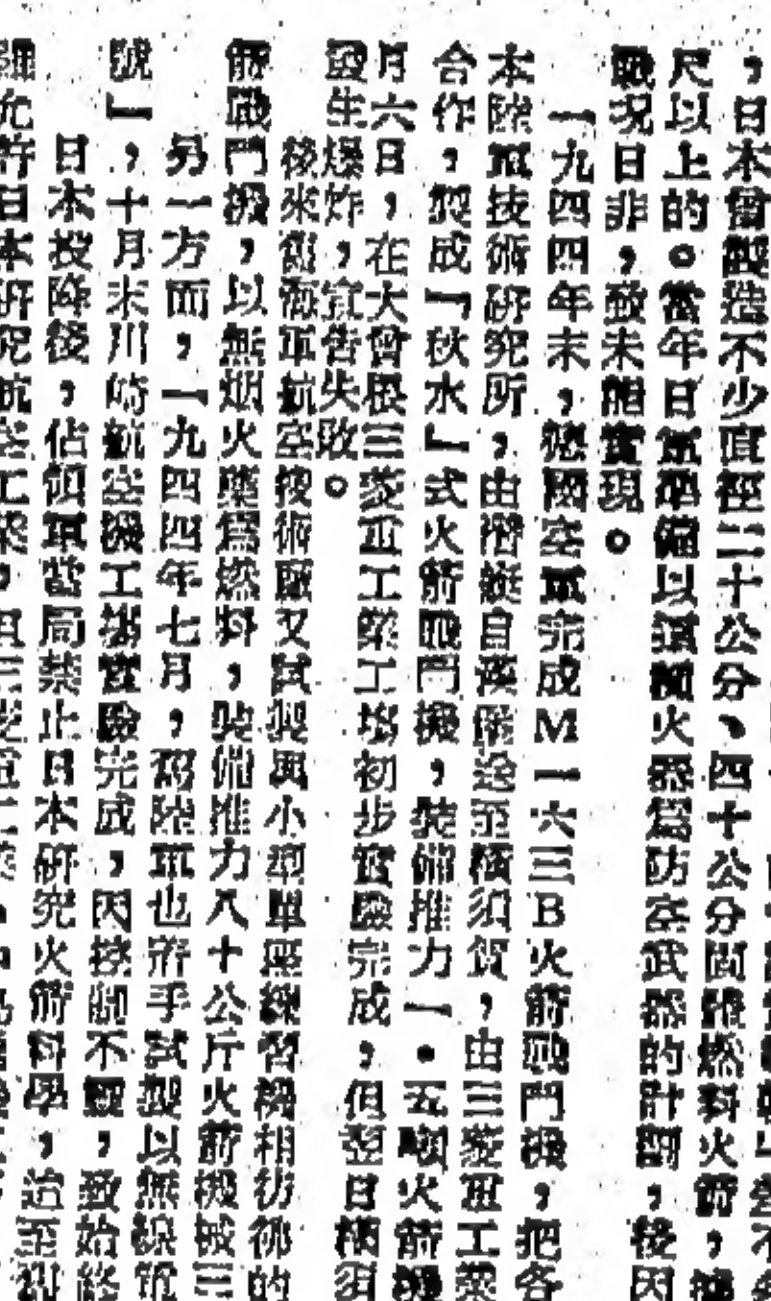 ，日本曾製造不少直徑二十公分、四十公分固體燃料火箭，
尺以上的。當年日軍準備以這種火器爲防空武器的計劃，後因
戰況日非，致未能實現。
一九四四年末，德國空軍完成M一六三B火箭戰鬥機，把各
本陸軍技術研究所，由潛艇自漢堡送至橫須賀，由三菱重工業
合作，製成「秋水」式火箭戰鬥機，裝備推力一・五噸火箭機
月六日，在大曾根三菱重工業工場初步實驗完成，但翌日橫須
發生爆炸，宣告失敗。
後來舊海軍航空技術廠又試製與小型單座練習機相彷彿的
箭戰鬥機，以無烟火藥爲燃料，裝備推力八十公斤火箭機械三
另一方面，一九四四年七月，舊陸軍也着手試製以無線電
號」，十月末川崎航空機工場實驗完成，因控制不靈，致始終
日本投降後，佔領軍當局禁止日本研究火箭科學，迨至
允許日本研究航空工業，